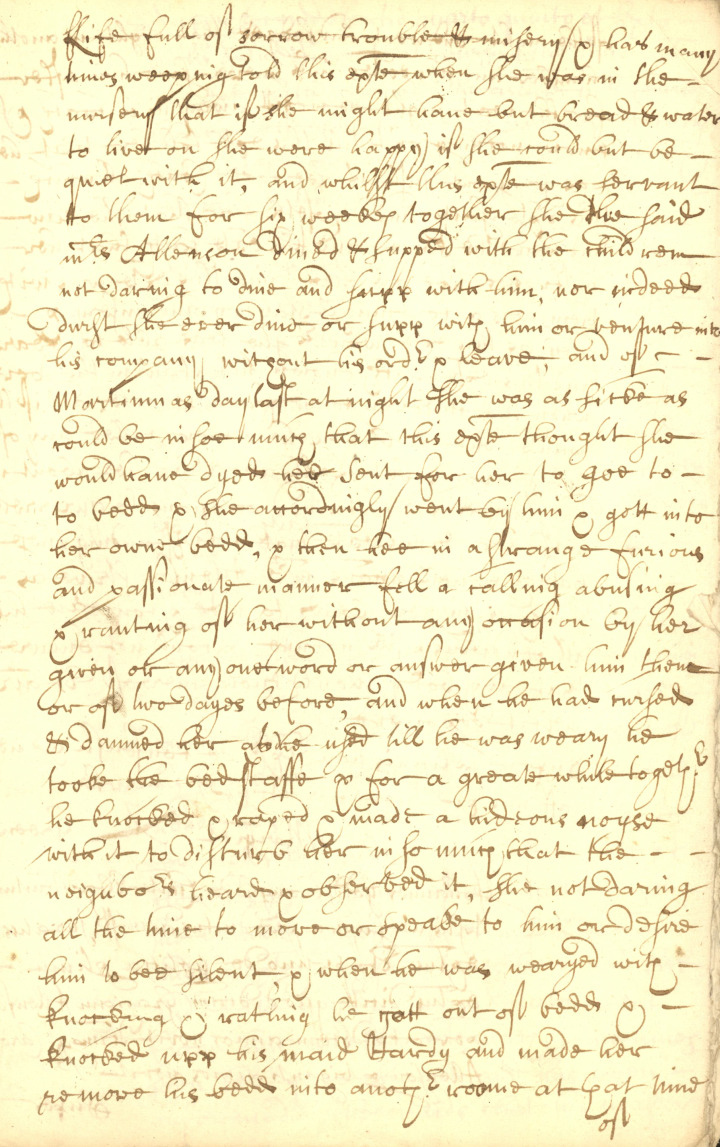 Life full of sorrow trouble & misery & has many
times weeping told this expte when she was in the
nursery that if she might have but bread & water
to live on she were happy if she could but be
quiet with it, and whilst this expte was servant
to them for six weekes together she the said
mrs Allenson dined & supped with the children
not daring to dine and supp with him, nor indeed
durst she ever dine or supp with him or venture into
his company without his ordr & leave, and of
Martinmas day last at night she was as sicke as
could be insoe much that this expte thought she
would have dyed hee sent for her to goe to
to bedd & she accordingly went by him & gott into
her owne bedd, & then hee in a strange furious
and passionate manner fell a calling abusing
& ranting of her without any occasion by her
given or any one word or answer given him then
or of two dayes before, and when he had cursed
& damned her as he used till he was weary he
tooke the bedstaffe & for a greate while togethr
he knocked & raped & made a hideous noyse
with it to disturb her inso much that the
neighbors heard & observed it, she not daring
all the time to move or speake to him or desire
him to bee silent, & when he was wearyed with
knocking & ratling he gott out of bedd &
knocked upp his maid Hardy and made her
remove his bedd into anothr roome at that time
of